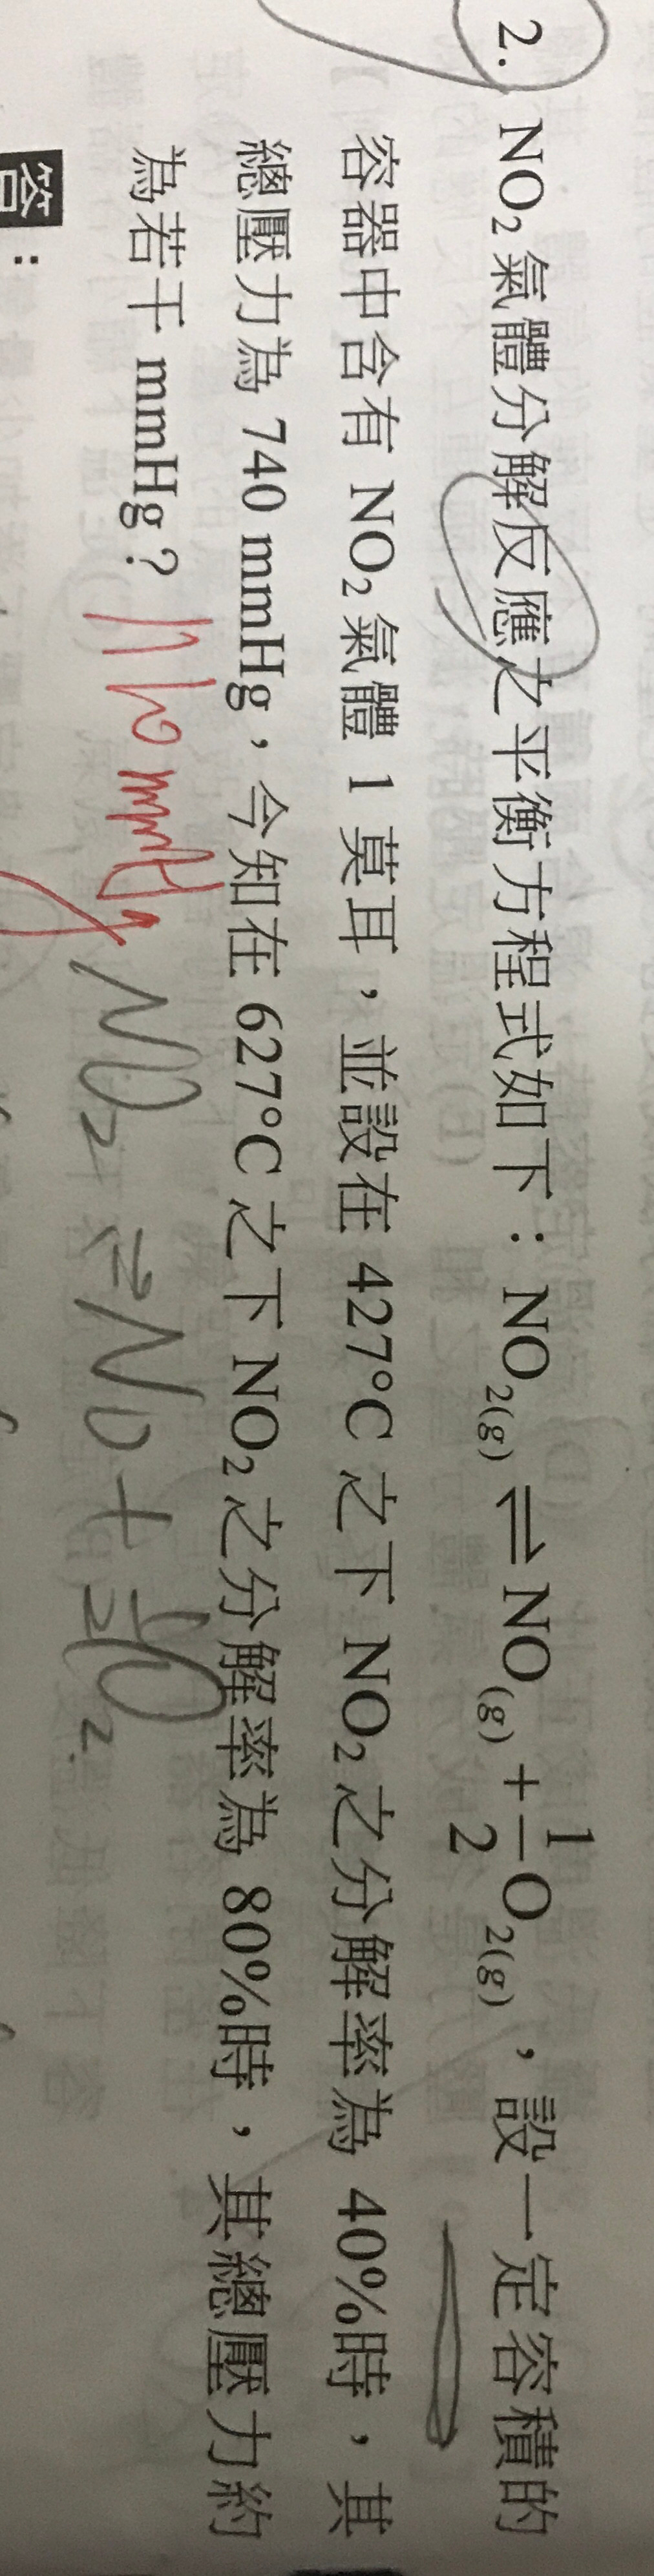 2. NO₂氣體分解反應之平衡方程式如下：NO₂(g) ⇌ NO(g) + 1/2 O₂(g)，設一定容積的
容器中含有 NO₂氣體 1 莫耳，並設在 427°C 之下 NO₂之分解率為 40%時，其
總壓力為 740 mmHg，今知在 627°C 之下 NO₂之分解率為 80%時，其總壓力約
為若干 mmHg？
NO₂ ⇌ NO + 1/2 O₂
答：